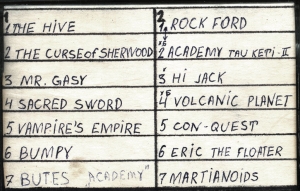 1 THE HIVE
2 THE CURSE OF SHERWOOD
3 MR. GASY
4 SACRED SWORD
5 VAMPIRE'S EMPIRE
6 BUMPY
7 BUTES „ACADEMY"
1 ROCK FORD
2 ACADEMY TAU KETI-II
3 HI JACK
4 VOLCANIC PLANET
5 CON-QUEST
6 ERIC THE FLOATER
7 MARTIANOIDS